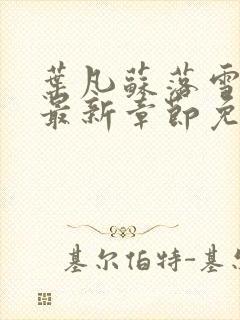 葉凡蘇落雪
最新章節免
基尔伯特-基尔